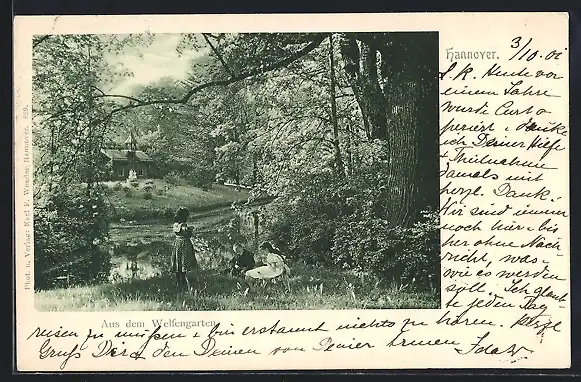 Hannover. 3/10.01
L. K. Heute vor
einem Jahre
wurde Curt o-
periert u. danke
ich Deiner Hilfe
+ Theilnahme
damals mit
herzl. Dank.
Wir sind immer
noch hier u. bis-
her ohne Nach-
richt, was u.
wie es werden
soll. Ich glaub-
te jeden Tag
Aus dem Welfengarten.
reisen zu müssen u. bin erstaunt nichts zu hören. Herzl.
Gruß Dir u. den Deinen von Deiner armen Ida W.
Phot. u. Verlag Karl F. Wunder, Hannover.